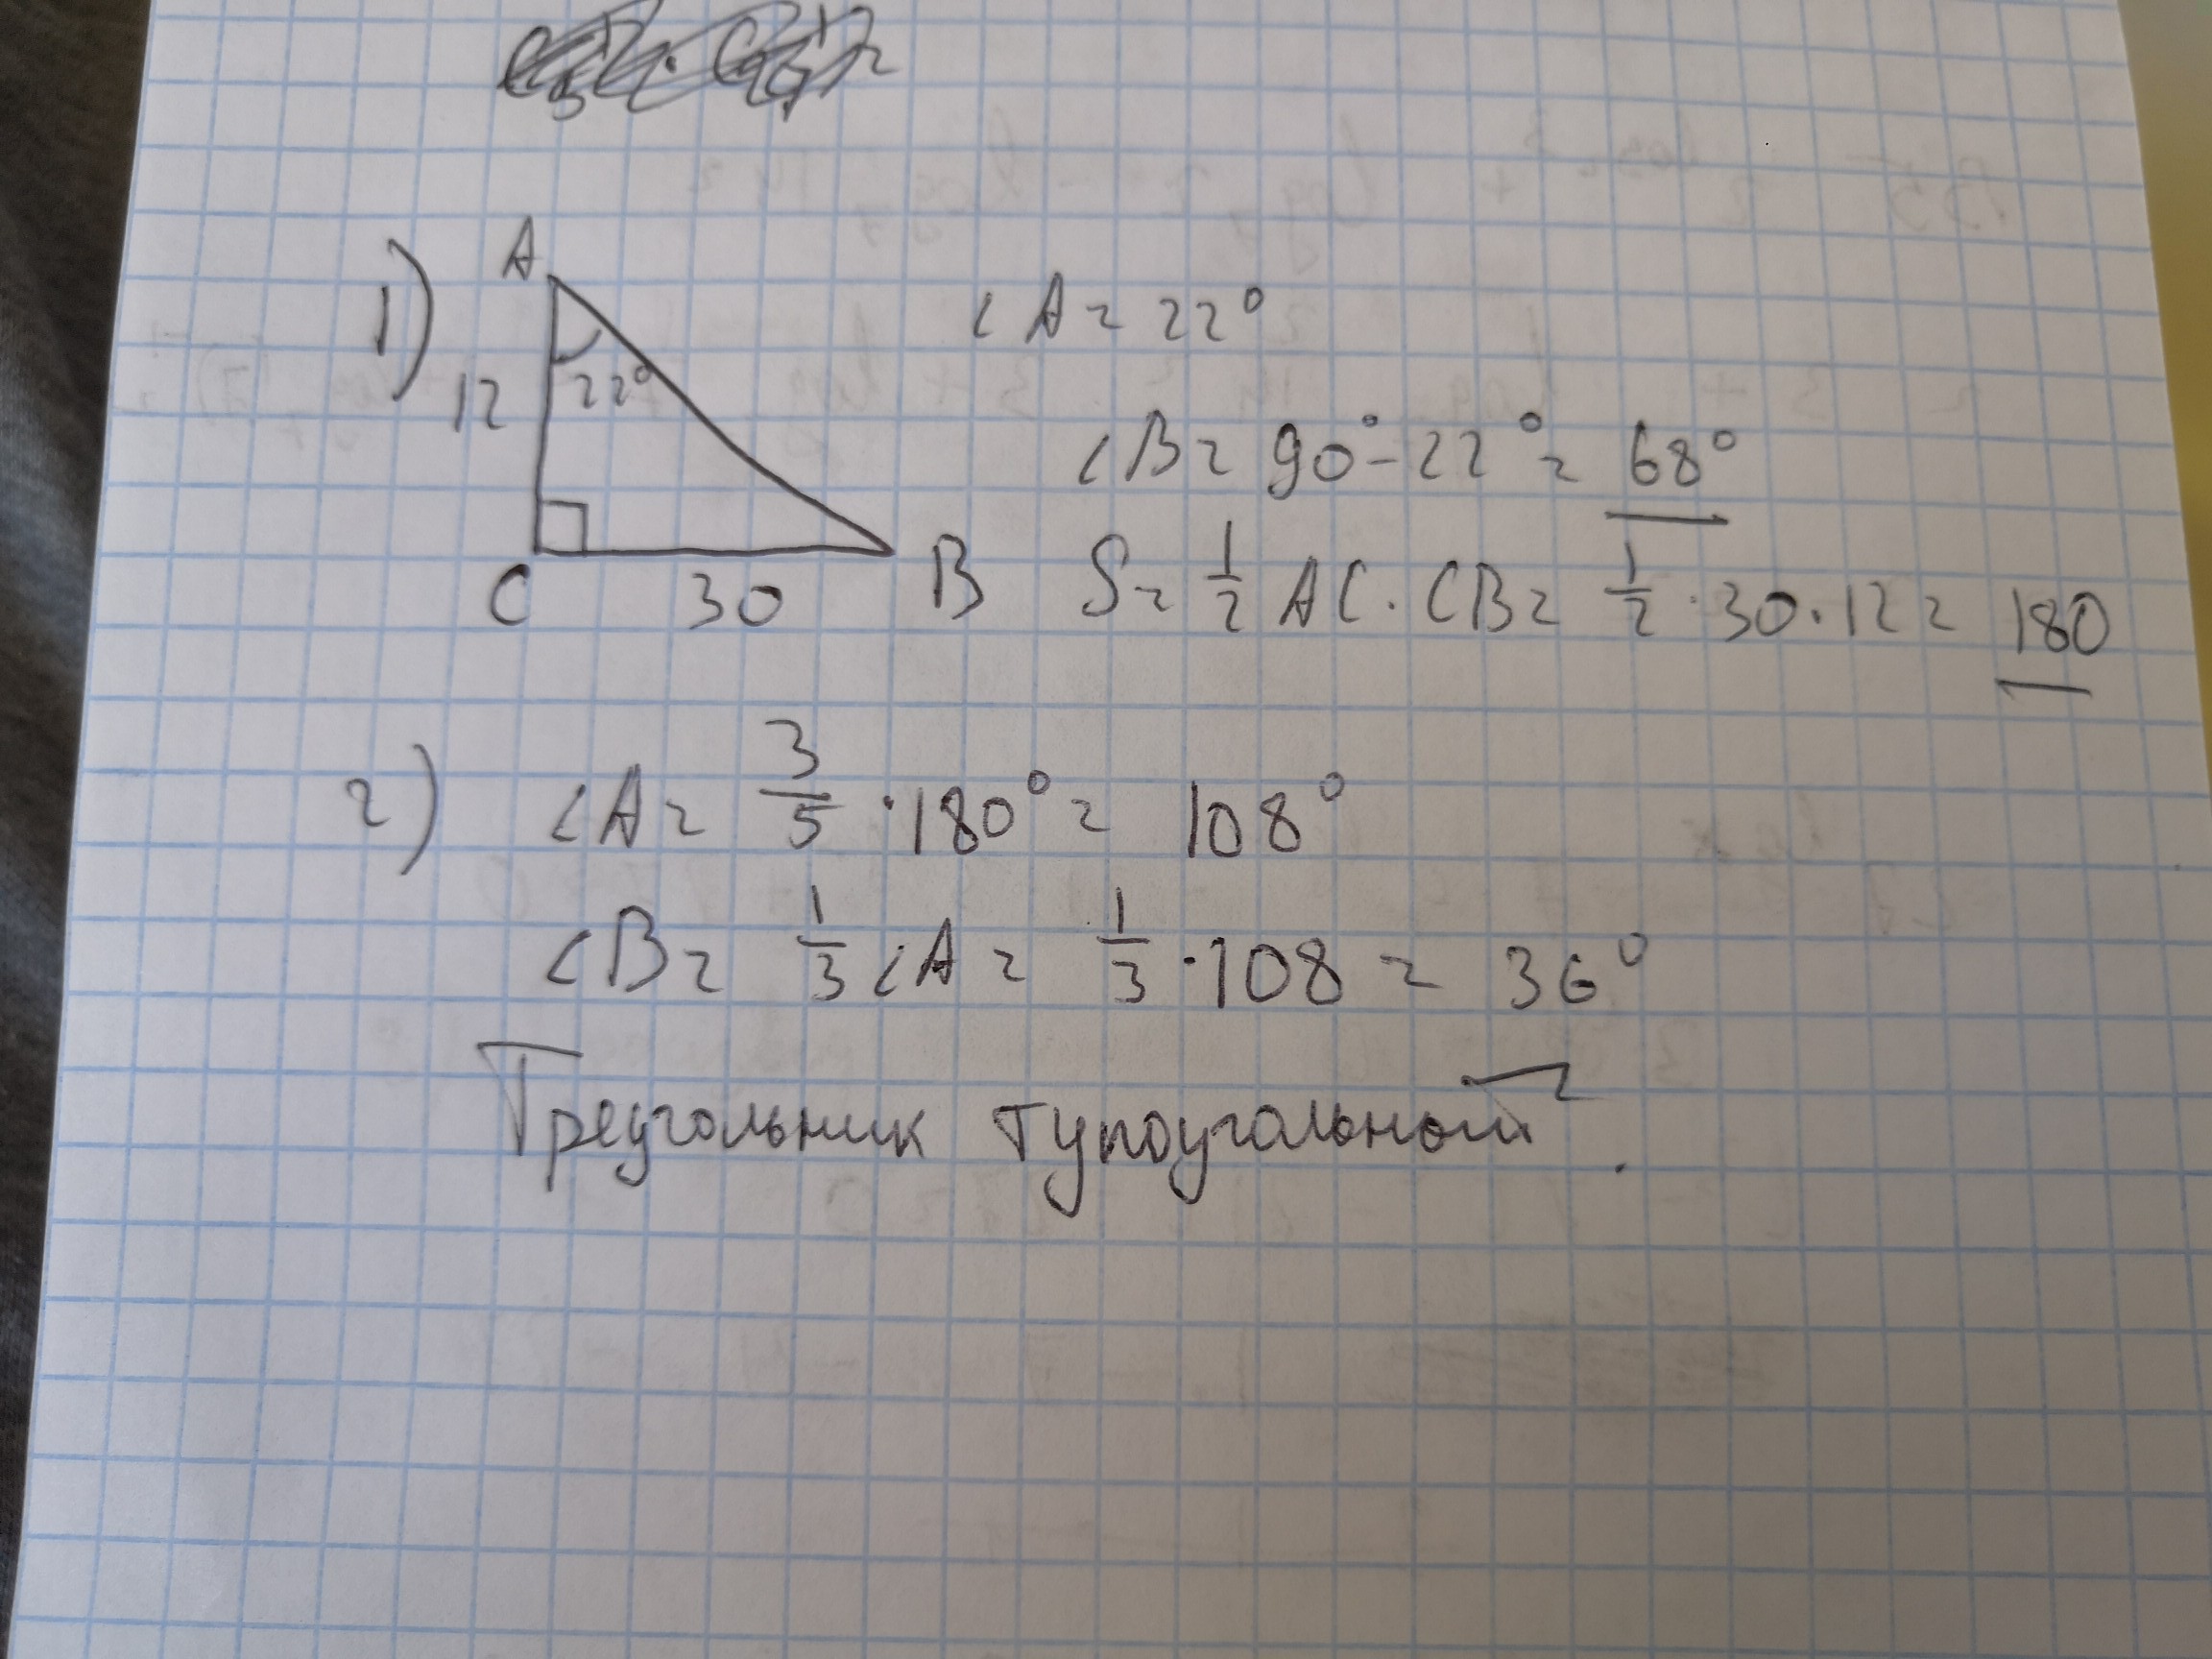 1)
A
12
22°
C
30
B
∠A = 22°
∠B = 90° - 22° = 68°
S = 1/2 AC · CB = 1/2 · 30 · 12 = 180
2) ∠A = 3/5 · 180° = 108°
∠B = 1/3 ∠A = 1/3 · 108 = 36°
Треугольник тупоугольной.